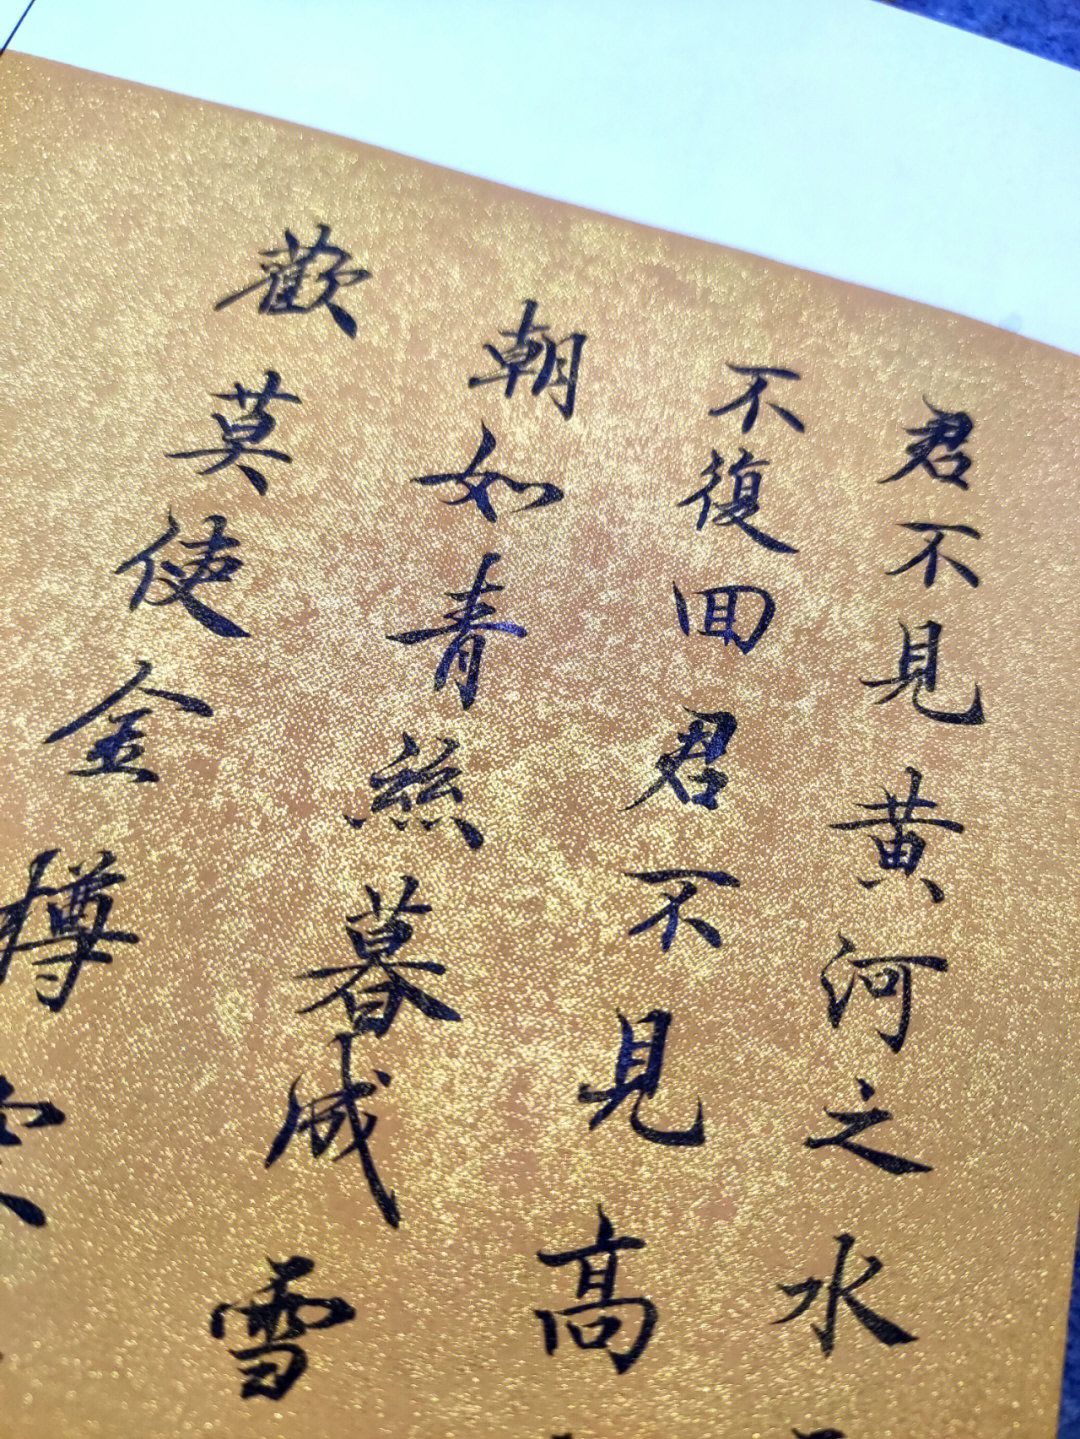 君不見黄河之水
不復回君不見高
朝如青絲暮成雪
歡莫使金樽空